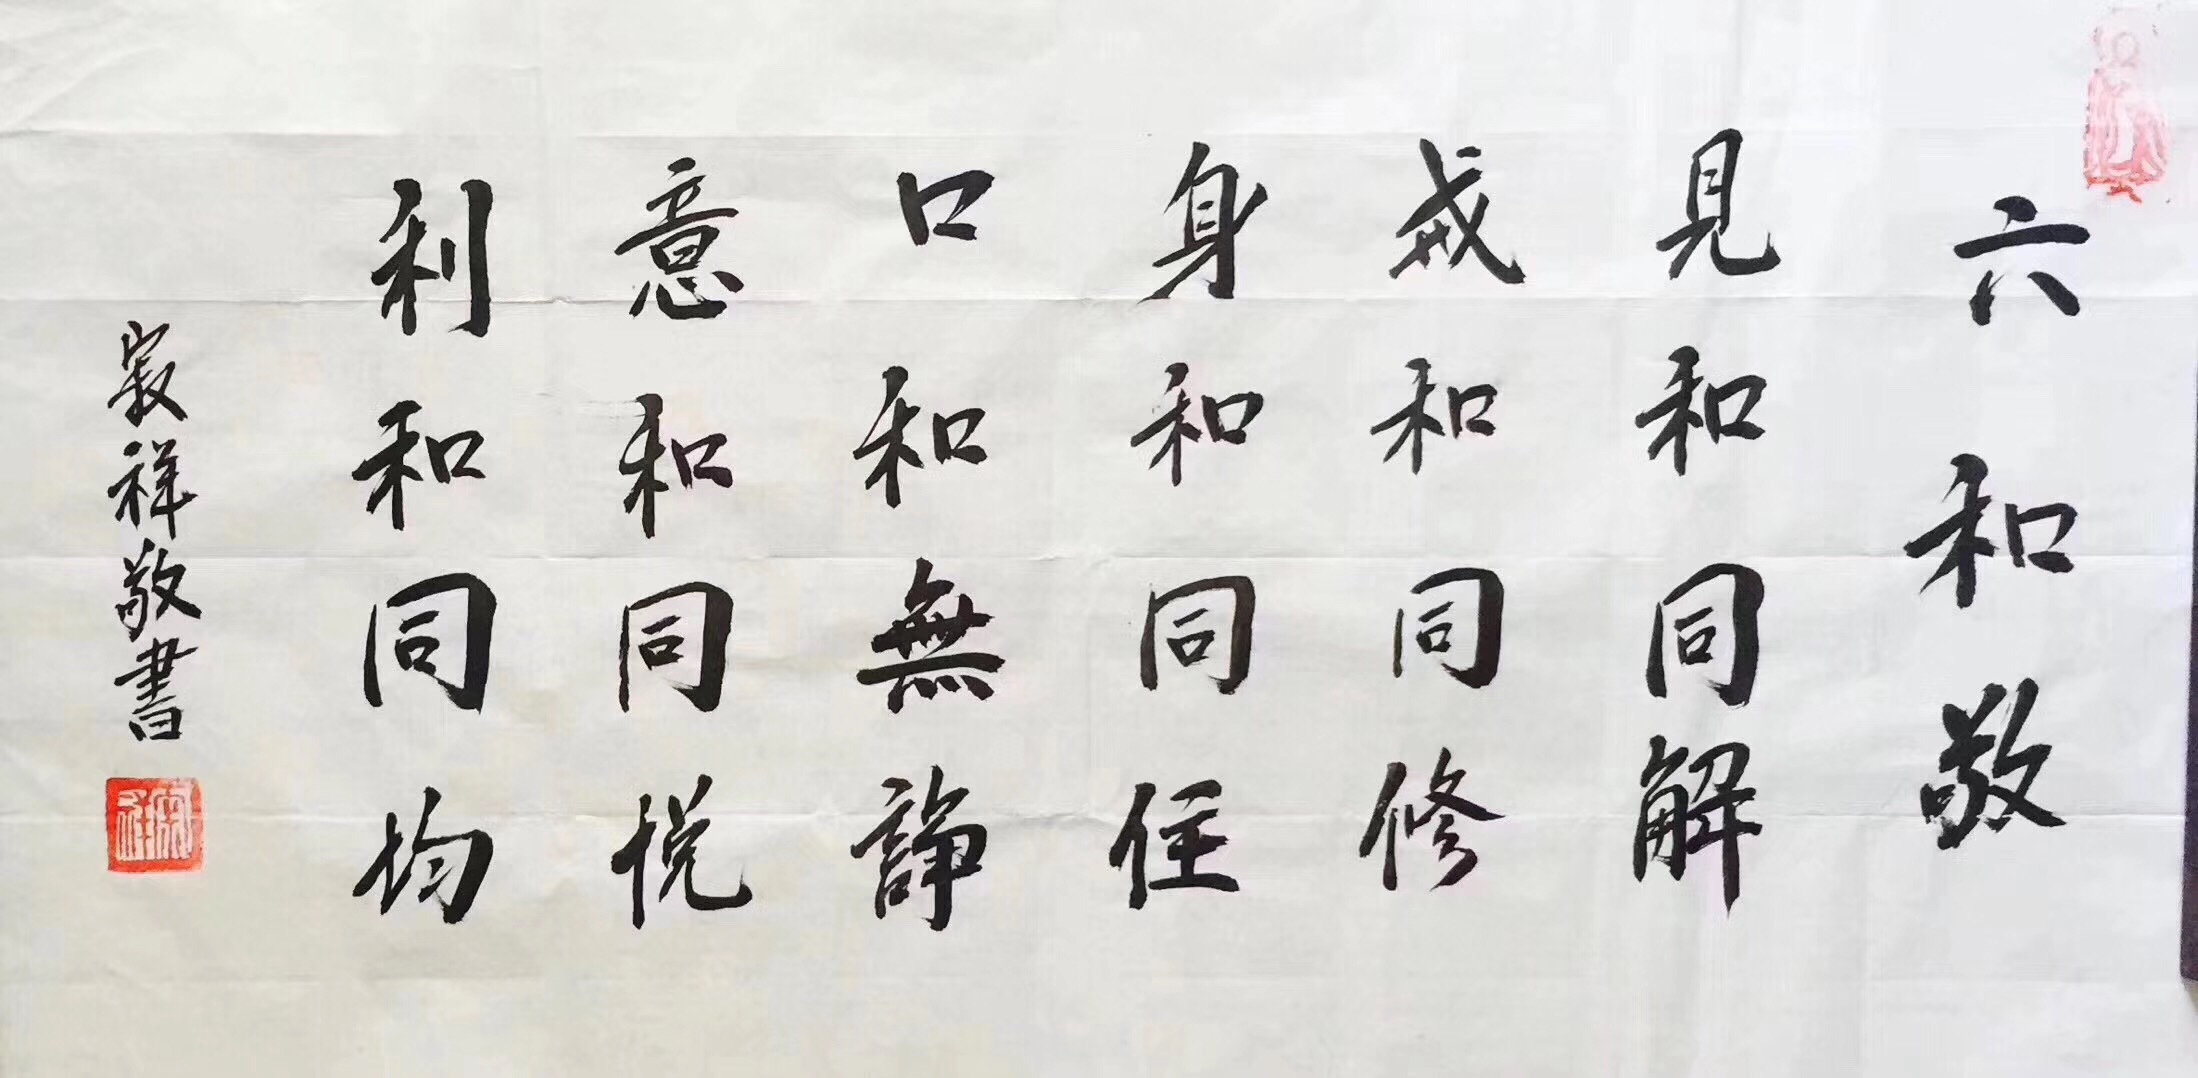 六和敬
見和同解
戒和同修
身和同住
口和無諍
意和同悦
利和同均
寂祥敬書